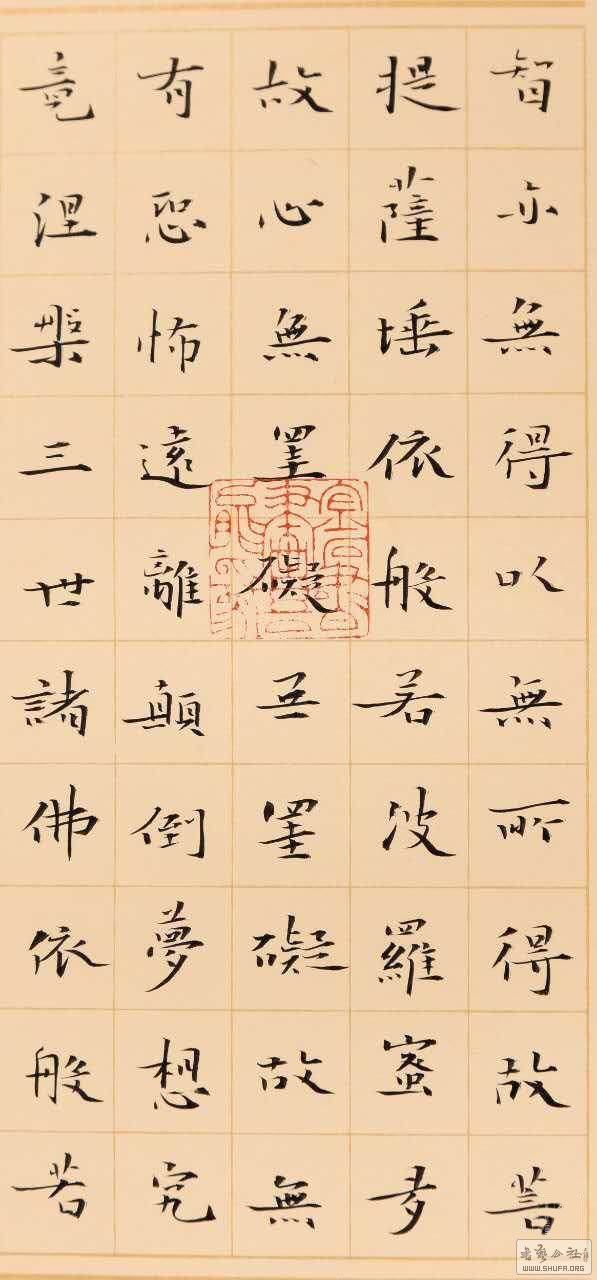 智亦無得以無所得故菩
提薩埵依般若波羅蜜多
故心無罣礙無罣礙故無
有恐怖遠離顛倒夢想究
竟涅槃三世諸佛依般若
WWW.SHUFA.ORG